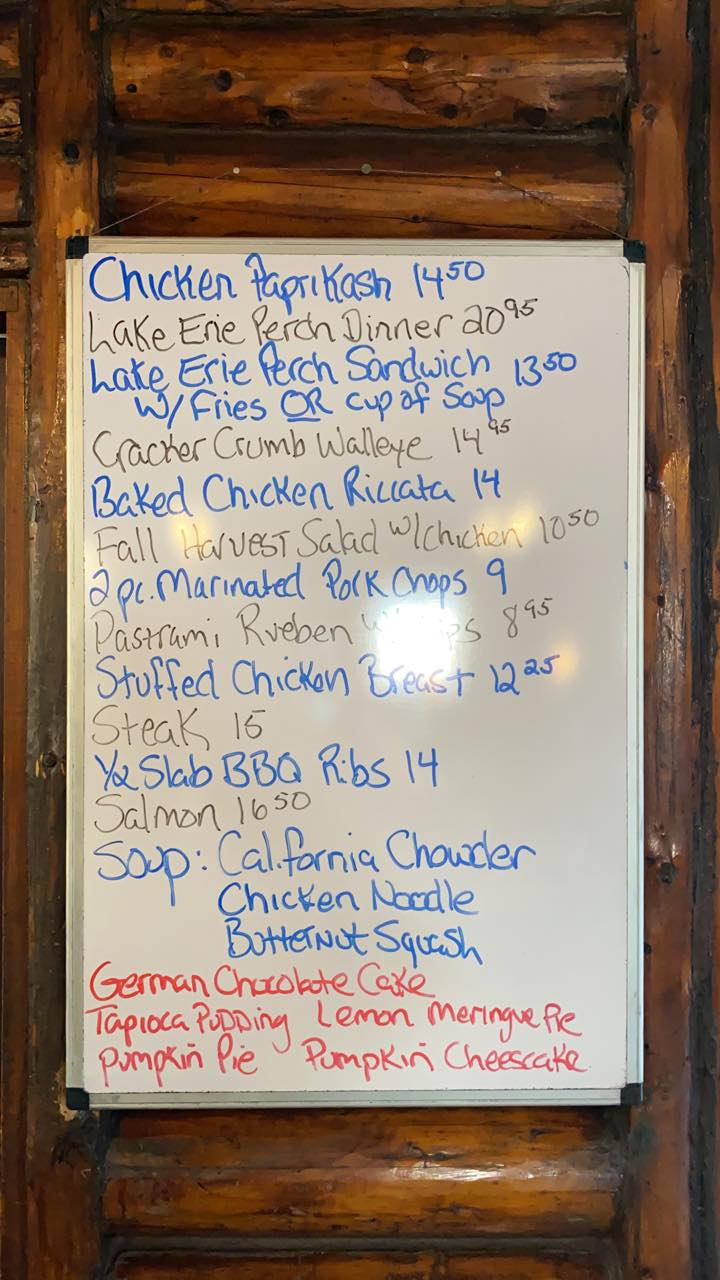 Chicken Paprikash 14 50
Lake Erie Perch Dinner 20 95
Lake Erie Perch Sandwich 13 50
W/ Fries OR cup of Soup
Cracker Crumb Walleye 14 95
Baked Chicken Riccata 14
Fall Harvest Salad w/chicken 10 50
2 pc. Marinated Pork Chops 9
Pastrami Rueben 8 95
Stuffed Chicken Breast 12 25
Steak 15
1/2 Slab BBQ Ribs 14
Salmon 16 50
Soup: California Chowder
Chicken Noodle
Butternut Squash
German Chocolate Cake
Tapioca Pudding Lemon Meringue Pie
Pumpkin Pie Pumpkin Cheescake